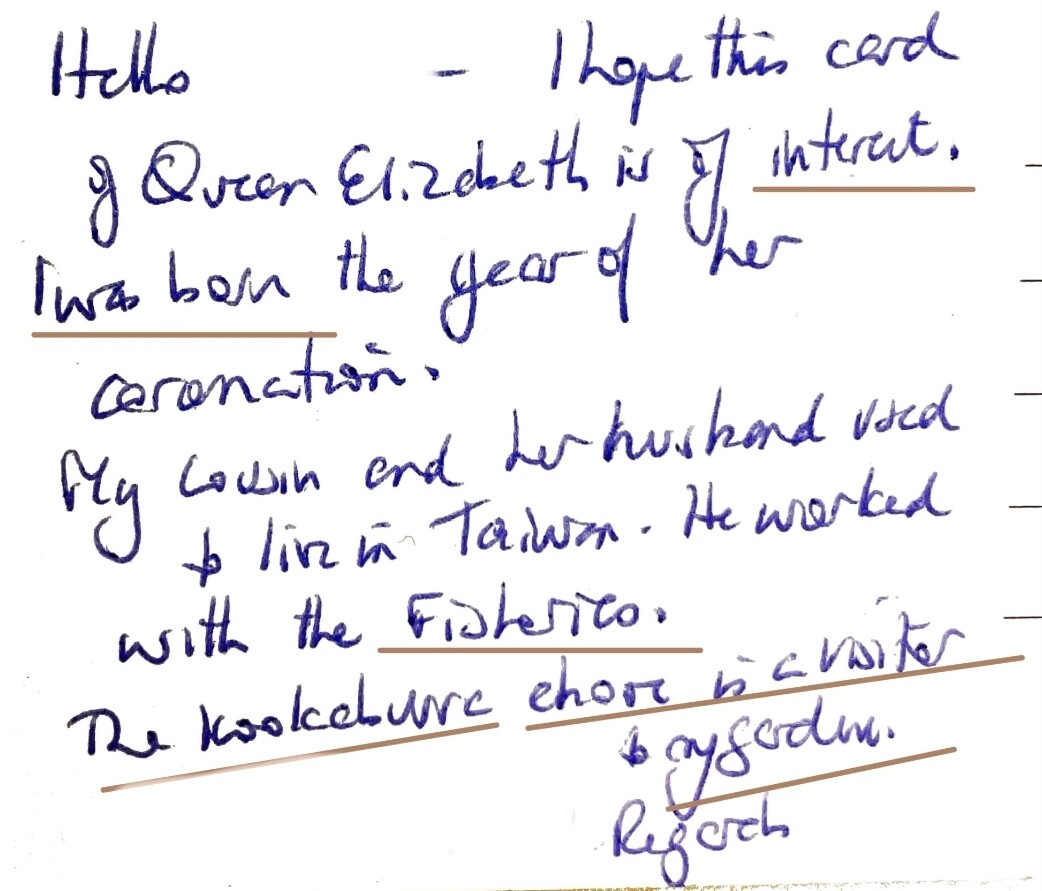 Hello - I hope this card
of Queen Elizabeth is of interest.
I was born the year of her
coronation.
My cousin and her husband used
to live in Taiwan. He worked
with the Fisheries.
The Kookaburra above is a visitor
to my garden.
Regards